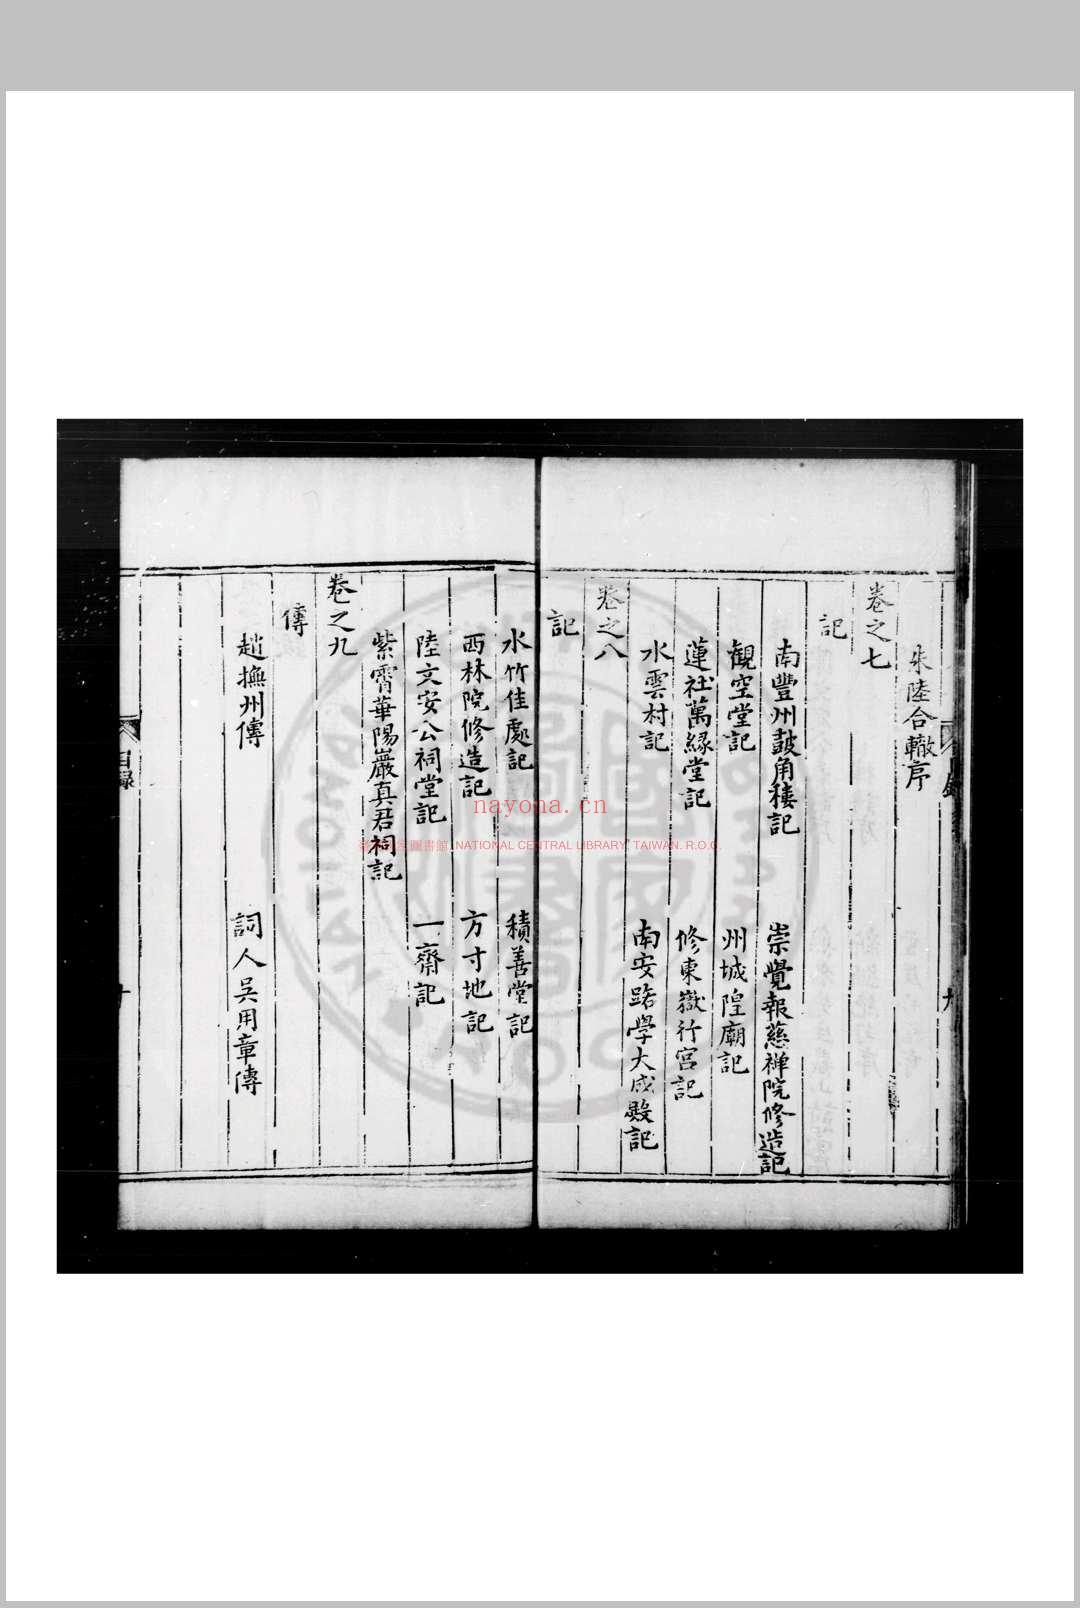 朱陸合轍序
卷之七
記
南豐州皷角樓記
崇覺報慈禅院修造記
觀空堂記
州城隍廟記
蓮社萬緣堂記
修東嶽行宮記
水雲村記
南安路學大成殿記
卷之八
記
水竹佳處記
積善堂記
西林院修造記
方寸地記
陸文安公祠堂記
一齋記
紫霄華陽巖真君祠記
卷之九
傳
趙撫州傳
詞人吳用章傳
目録
nayona.cn
NATIONAL CENTRAL LIBRARY, TAIWAN. R.O.C.